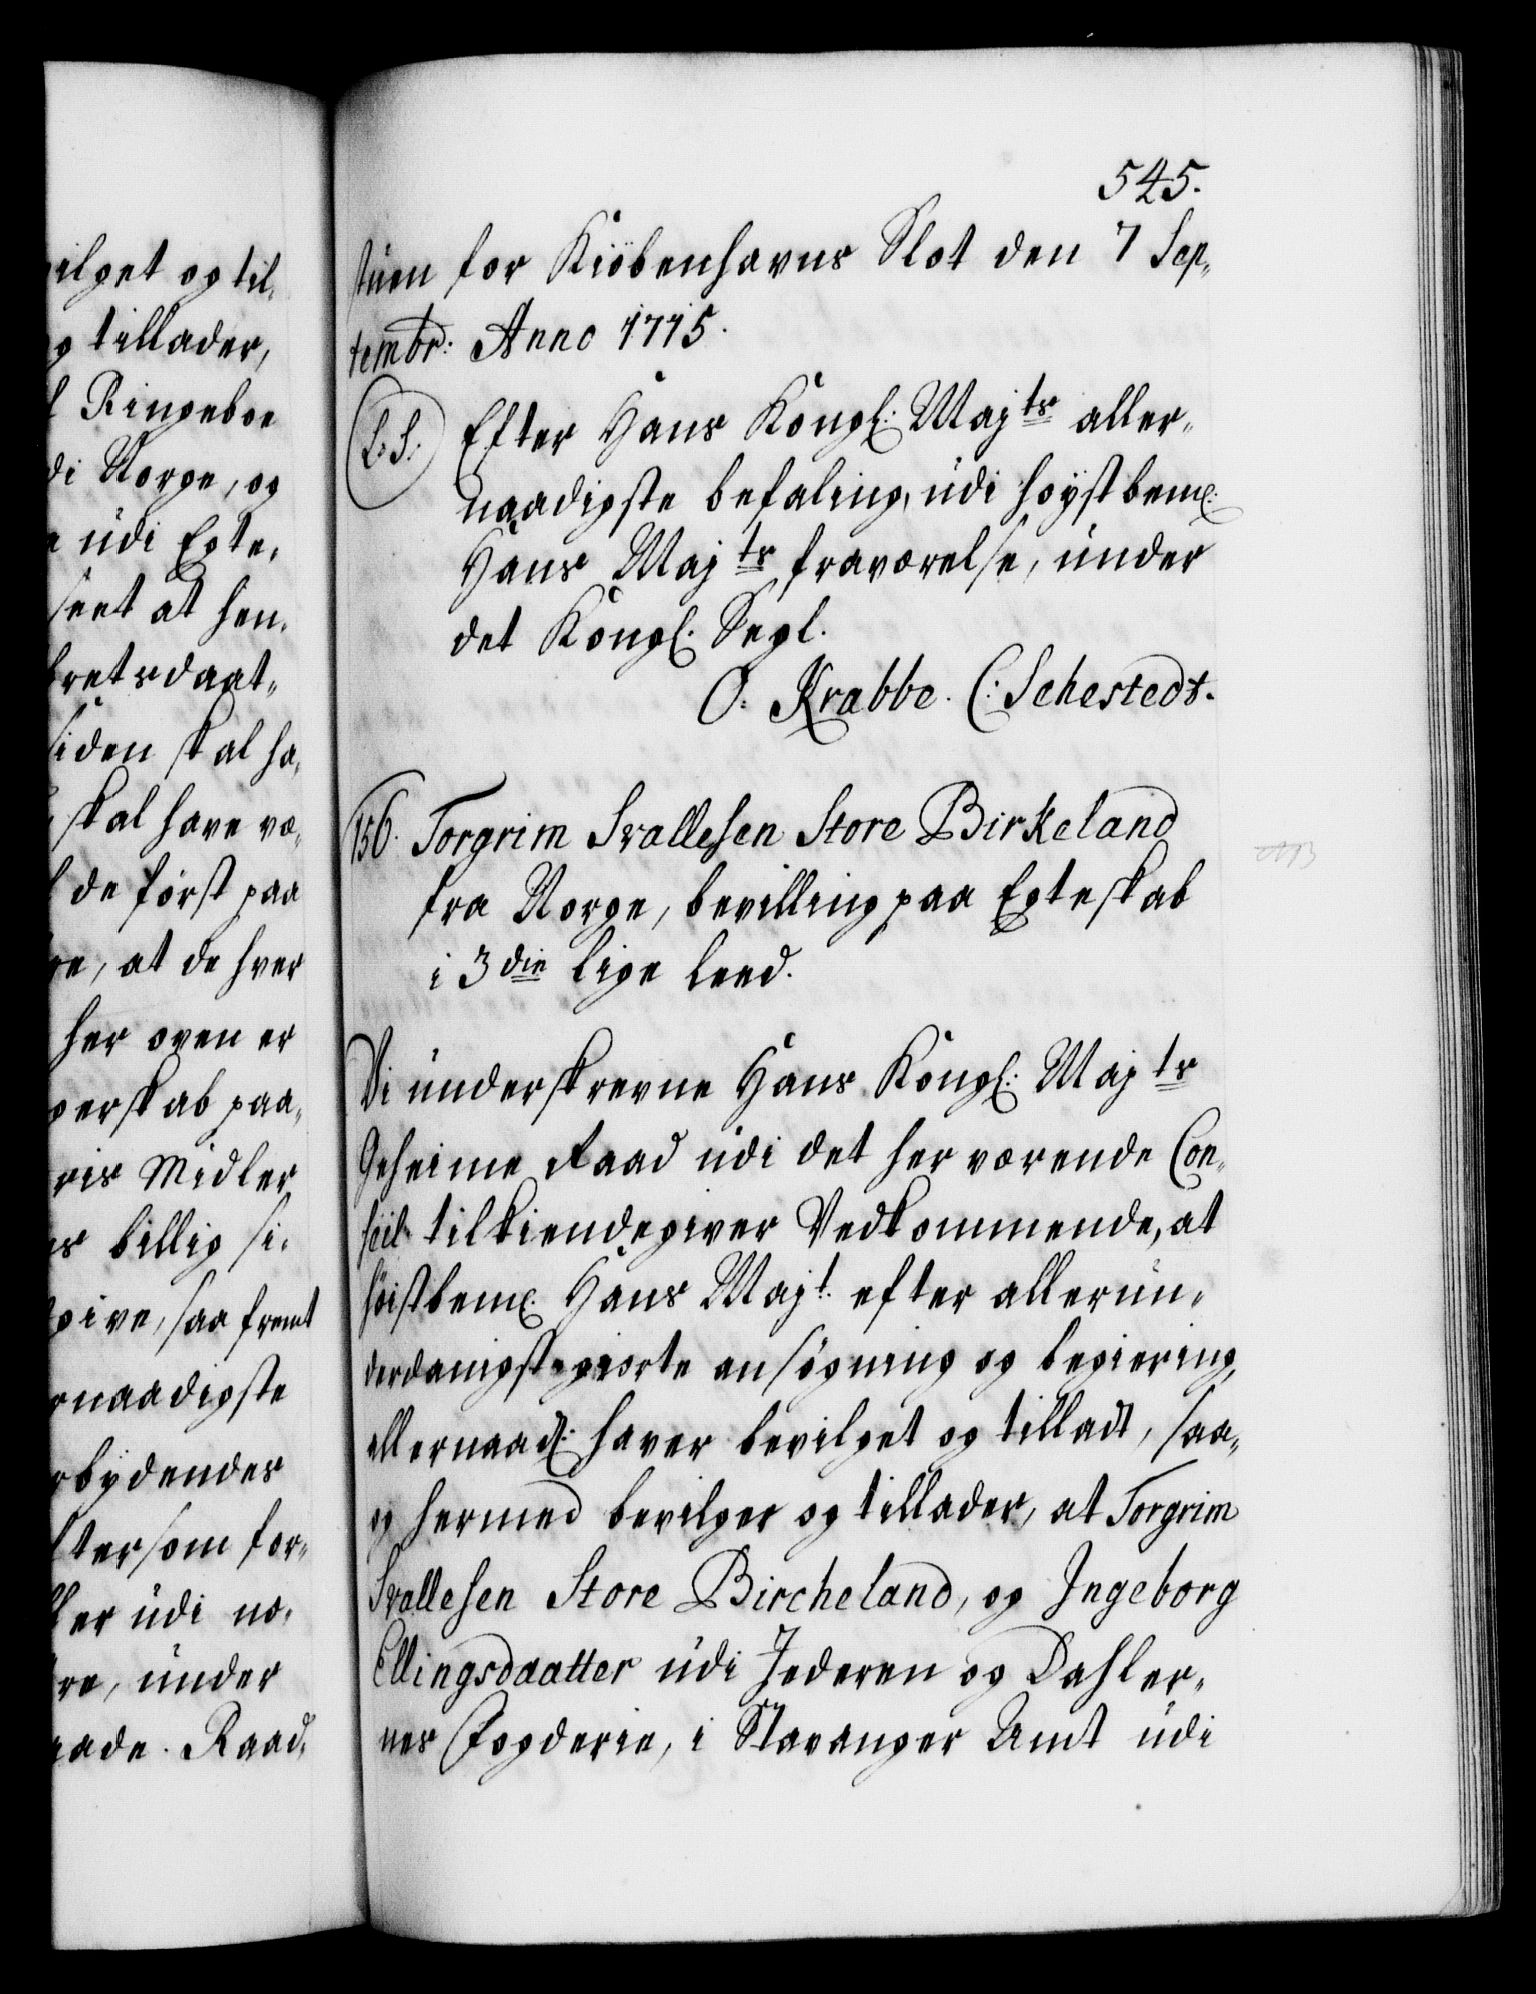 ilget og til-
g tillader,
l Ringeboe
di Norge, og
e udi Egte-
seet at hen-
bretsdaat-
siden skal ha-
skal have væ-
l de først paa
re, at de hver
her oven er
gerskab paa-
ris Midler
es billig si-
give, saa fremt
rnaadigste
rbydendes
tersom for-
ler udi no-
re, under
aade. Raad-
545.
stuen for Kiöbenhavns Slot den 7 Sep-
tembr: Anno 1715.
L.S. Efter Hans Kongl: Majts aller-
naadigste befaling, udi høystbem:
Hans Majts fraværelse, under
det Kongl. Segl.
O: Krabbe. C: Sehestedt.
156. Torgrim Svallesen Store Birkeland
fra Norge, bevilling paa Egteskab
i 3die lige Leed.
Vi underskrevne Hans Kongl: Majts
Geheime Raad udi det her værende Con-
seil tilkiendegiver Vedkommende, at
høistbem: Hans Majt. efter allerun-
derdanigst giorte ansøgning og begiering,
allernaad: haver bevilget og tilladt, saa-
og hermed bevilger og tillader, at Torgrim
Svallesen Store Bircheland, og Ingeborg
Ellingsdaatter udi Jederen og Dahler-
nes Fogderie, i Stavanger Amt udi